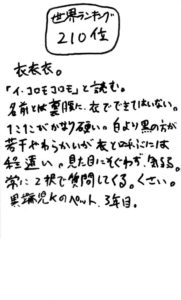 世界ランキング
210位
衣衣衣。
「イ・コロモコロモ」と読む。
名前とは裏腹に、衣でできてはいない。
1こ1こがかなり硬い。白より黒の方が
若干やわらかいが衣と呼ぶには
程遠い。見た目にそぐわず、気さる。
常に2択で質問してくる。くさい。
黒幕児Kのペット。3年目。